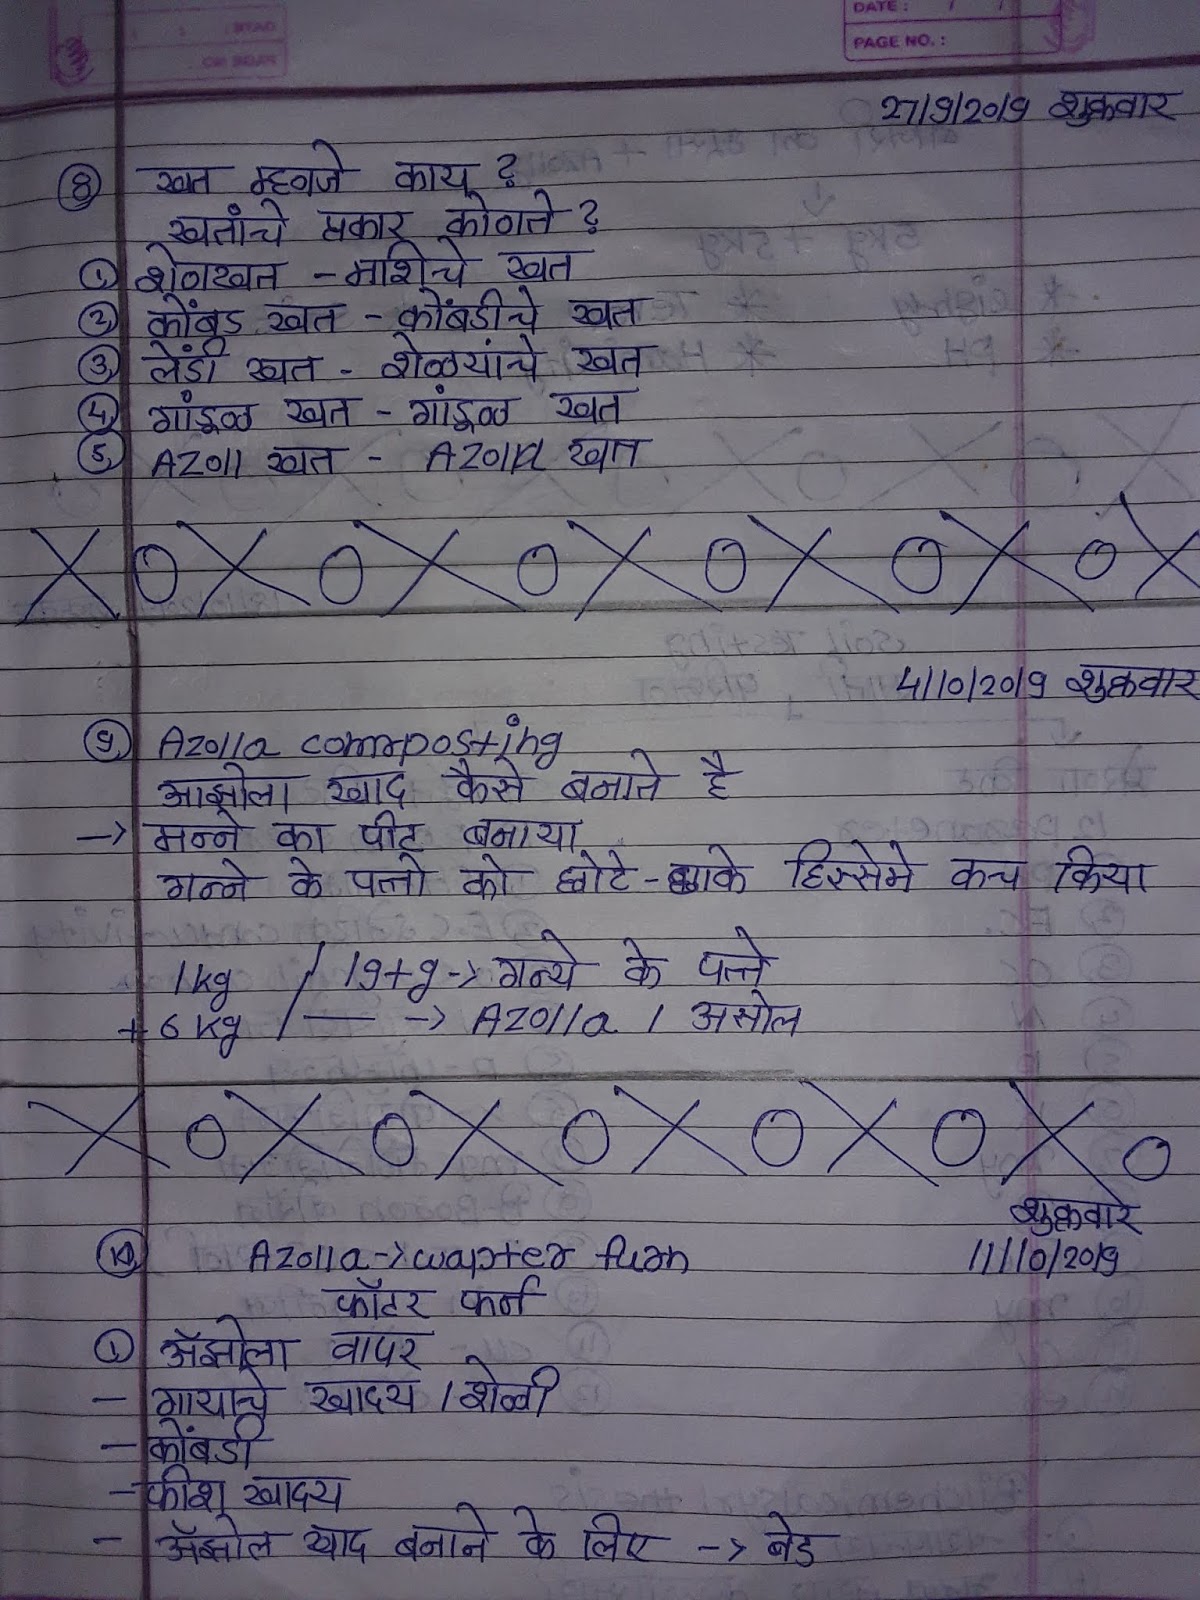 DATE : / /
PAGE NO. :
27/9/2019 शुक्रवार
8 खत म्हणजे काय ?
खतांचे प्रकार कोणते ?
1 शेणखत - माशिचे खत
2 कोंबड खत - कोंबडीचे खत
3 लेंडी खत - शेळयांचे खत
4 गांडूळ खत - गांडूळ खत
5 AZOll खत - AZOlla खत
4/10/2019 शुक्रवार
9 AZOlla composting
आझोला खाद कैसे बनाते है
-> मन्ने का पीट बनाया
गन्ने के पत्तो को छोटे - हिस्सेमे कच किया
1kg / 19+9-> गन्ये के पत्ते
+ 6 kg / — -> AZOlla / असोल
शुक्रवार
10 AZOlla -> wapter furn 11/10/2019
फॉटर फर्न
1 अॅझोला वापर
- गायाचे खादय / शेळी
- कोंबडी
- फीश खादय
- अॅझोल खाद बनाने के लिए -> बेड